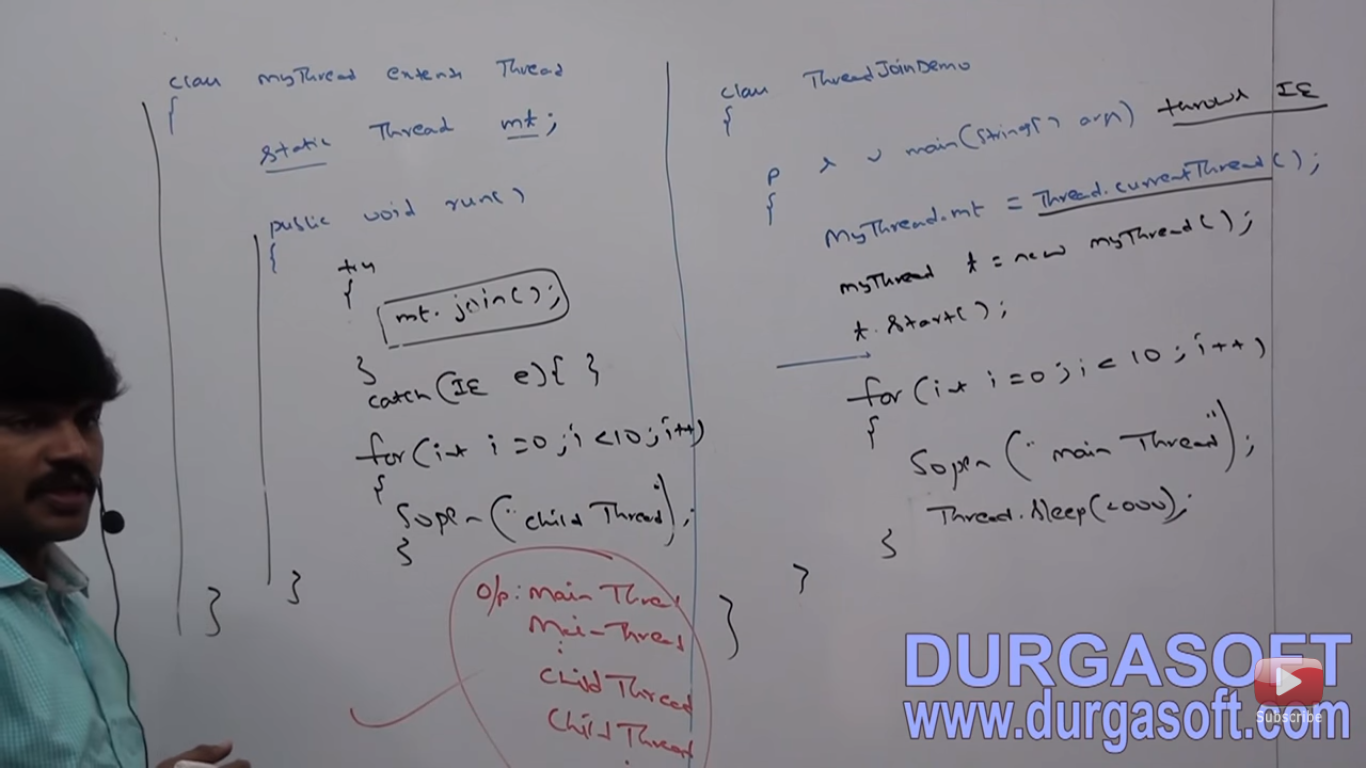 class MyThread extends Thread
{
static Thread mt;
public void run()
{
try
{
mt.join();
}
catch(IE e){ }
for(int i=0;i<10;i++)
{
Sopln("child Thread");
}
}
}
o/p: main Thread
Main Thread
Child Thread
Child Thread
class ThreadJoinDemo
{
p s v main(String[] args) throws IE
{
MyThread.mt = Thread.currentThread();
myThread t = new myThread();
t.start();
for(int i=0;i<10;i++)
{
Sopln("main Thread");
Thread.sleep(2000);
}
}
}
DURGASOFT
www.durgasoft.com
Subscribe